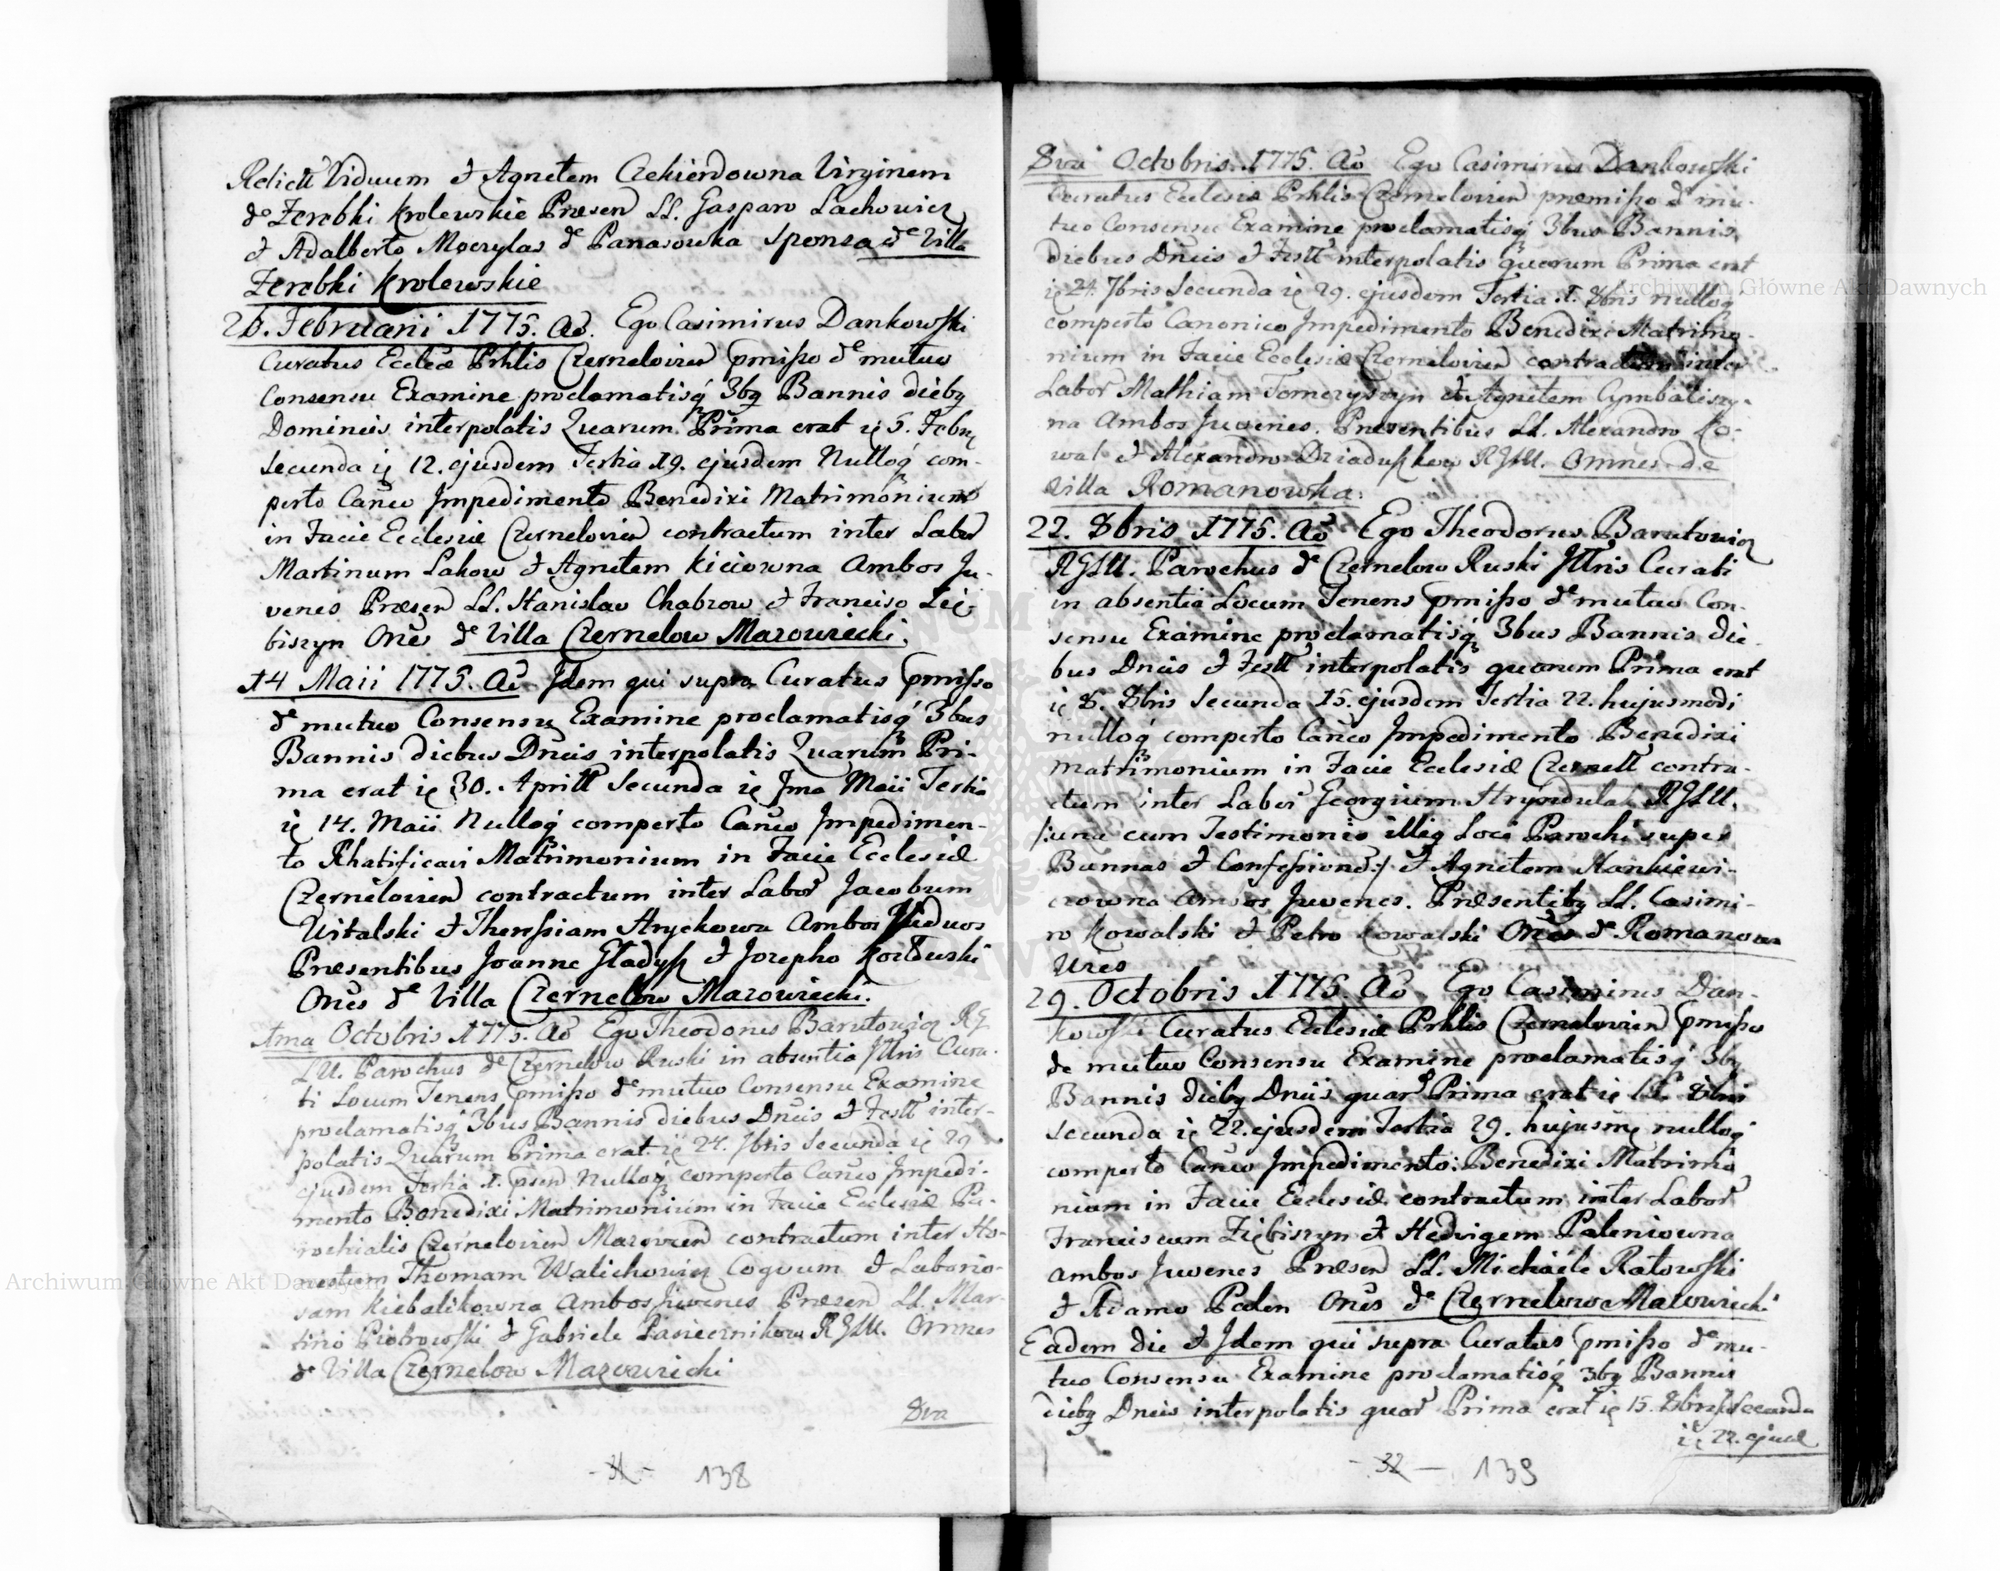 Relictū Viduum & Agnetem Czekierdowna Virginem
de Zerebki Krolewskie Præsen LL. Gasparo Lachowicz
& Adalberto Moczylas de Panasowka Sponsa de Villa
Zerebki Krolewskie
26. Februarii 1775. Ao. Ego Casimirus Dankowski
Curatus Eccleæ Prhlis Czernelovien pmisso de mutuo
Consensu Examine proclamatisq 3bq Bannis diebq
Dominicis interpolatis Quarum Prima erat ię 5. Febr
Secunda ię 12. ejusdem Tertia 19. ejusdem Nulloq com-
perto Canco Impedimento Benedixi Matrimonium
in Facie Ecclesiæ Czernelovien contractum inter Labor
Martinum Lahow & Agnetem Kiciowna Ambos Ju-
venes Præsen LL. Stanislao Chabrow & Francisco Zię-
biszyn Ones de Villa Czernelow Mazowiecki.
14 Maii 1775. Ao. Idem qui supra Curatus pmisso
de mutuo Consensu Examine proclamatisq 3bus
Bannis diebus Dncis interpolatis Quarum Pri-
ma erat ię 30. Aprill Secunda ię Ima Maii Tertia
ię 14. Maii Nulloq comperto Canco Impedimen-
to Rhatificavi Matrimonium in Facie Ecclesiæ
Czernelovien contractum inter Labor Jacobum
Witalski & Theressiam Hryckowa Ambos Viduos
Præsentibus Joanne Gladysz & Josepho Kozłuski
Ones de Villa Czernelow Mazowiecki.
1ma Octobris 1775. Ao Ego Theodorus Barutowicz RG
LU. Parochus de Czernelow Ruski in absentia Illris Cura-
ti Locum Tenens pmisso de mutuo Consensu Examine
proclamatisq 3bus Bannis diebus Dncis & Festł inter-
polatis Quarum Prima erat ię 24. 7bris Secunda ię 29
ejusdem Tertia 1. psen Nulloq comperto Canco Impedi-
mento Benedixi Matrimonium in Facie Ecclesiæ Pa-
rochialis Czernelovien Mazovien contractum inter Ho-
nestum Thomam Walichowicz Coquum & Laborio-
sam Kiebalikowna Ambos Juvenes Præsen LL. Mar-
tino Piotrowski & Gabriele Pasiecznikow RGLU. Omnes
de Villa Czernelow Mazowiecki
8va
- 31 - 138
8va Octobris 1775. Ao Ego Casimirus Dankowski
Curatus Ecclesiæ Prhlis Czernelovien præmisso de mu-
tuo Consensu Examine proclamatisq 3bus Bannis
diebus Dncis & Festł interpolatis quarum Prima erat
ię 24. 7bris Secunda ię 29. ejusdem Tertia 1. 8bris nulloq
comperto Canonico Impedimento Benedixi Matrimo-
nium in Facie Ecclesiæ Czernelovien contractum inter
Labor Mathiam Tomczyszyn & Agnetem Cymbaliszy-
na Ambos Juvenes. Præsentibus LL. Alexandro Ko-
wal & Alexandro Dziaduszkow RGLU. Omnes de
Villa Romanowka.
22. 8bris 1775. Ao Ego Theodorus Barutowicz
RGLU. Parochus de Czernelow Ruski Illris Curati
in absentia Locum Tenens pmisso de mutuo Con-
sensu Examine proclamatisq 3bus Bannis die-
bus Dncis & Festł interpolatis quarum Prima erat
ię 8. 8bris Secunda 15. ejusdem Tertia 22. hujusmodi
nulloq comperto Canco Impedimento Benedixi
Matrimonium in Facie Ecclesiæ Czernell contra-
ctum inter Labor Georgium Hryndulak RGLU.
/:una cum Testimonio illiq Loci Parochi super
Bannas & Confession:/ & Agnetem Stankiewi-
czowna Ambos Juvenes. Præsentibq LL. Casimi-
ro Kowalski & Petro Kowalski Ones de Romanow
29. Octobris 1775. Ao. Ego Casimirus Dan-
kowski Curatus Ecclesiæ Prhlis Czernelovien pmisso
de mutuo Consensu Examine proclamatisq 3bq
Bannis diebq Dncis quar Prima erat ię 15. 8bris
Secunda ię 22. ejusdem Tertia 29. hujusm nulloq
comperto Canco Impedimento: Benedixi Matrimo
nium in Facie Ecclesiæ contractum inter Labor
Franciscum Ziębiszyn & Hedvigem Paleniowna
Ambos Juvenes Præsen LL. Michaele Ratowski
& Adamo Peden Ones de Czernelow Mazowiecki
Eadem die & Idem qui supra Curatus pmisso de mu-
tuo Consensu Examine proclamatisq 3bq Bannis
diebq Dncis interpolatis quar Prima erat ię 15. 8bris Secunda
ię 22. ejusd
- 32 - 139
Archiwum Główne Akt Dawnych
Archiwum Główne Akt Dawnych